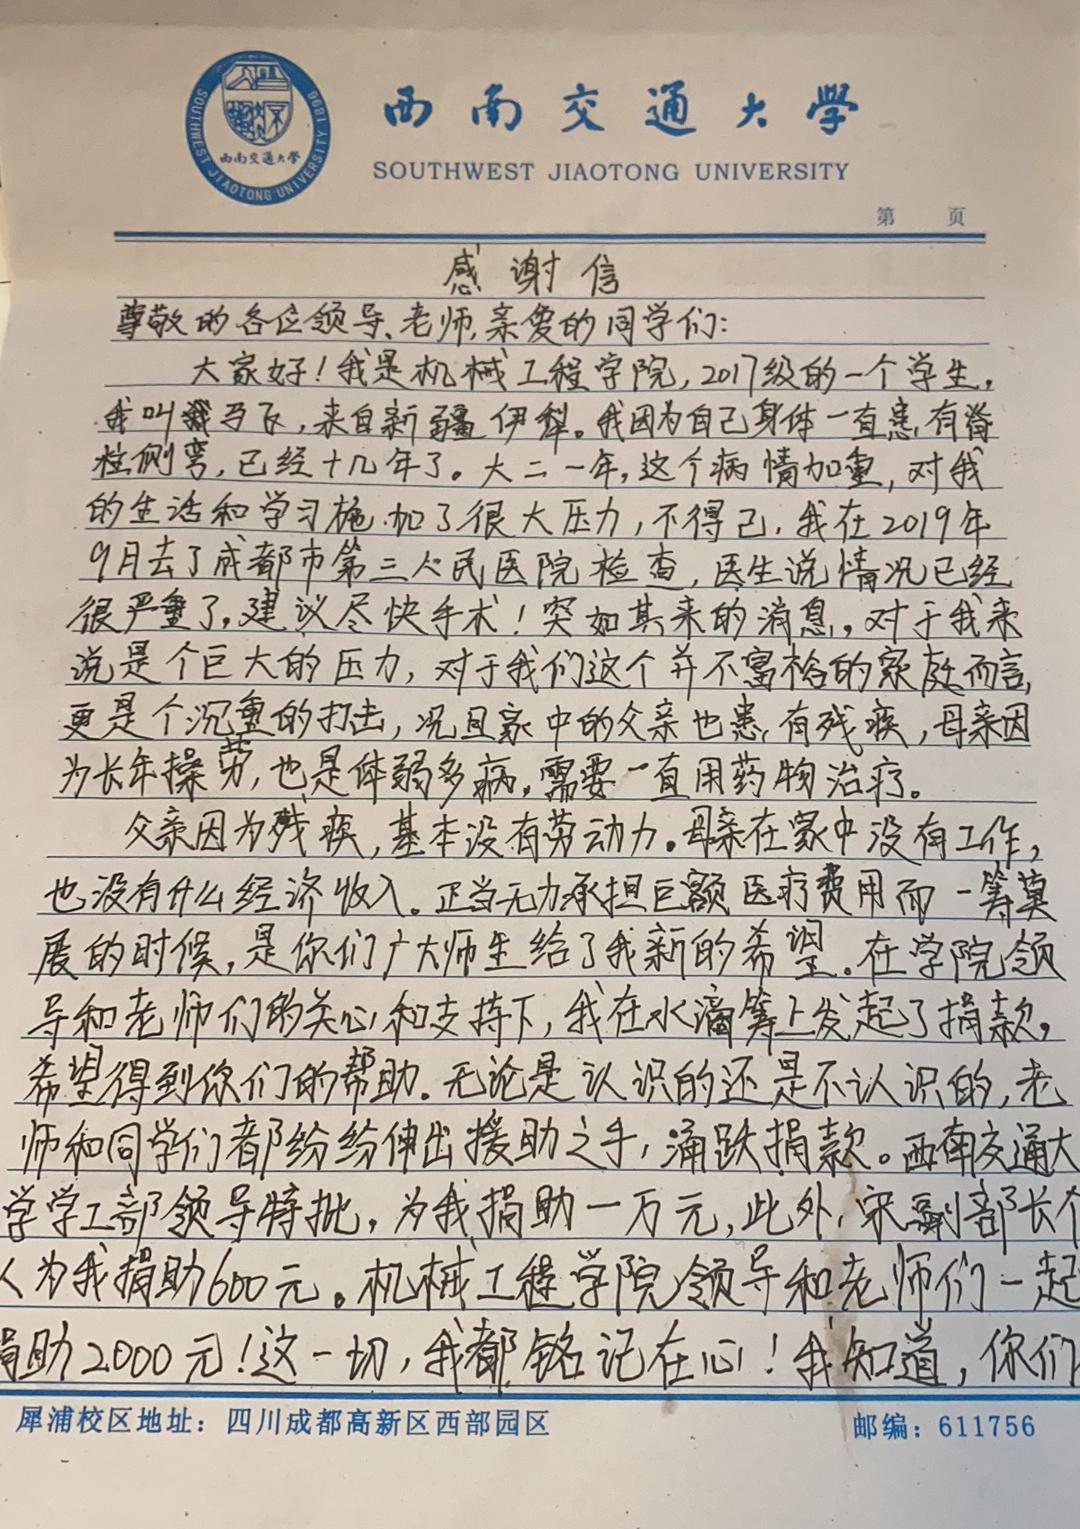 SOUTHWEST JIAOTONG UNIVERSITY 1896
西南交通大学
西南交通大学
SOUTHWEST JIAOTONG UNIVERSITY
第 页
感谢信
尊敬的各位领导、老师,亲爱的同学们:
大家好!我是机械工程学院,2017级的一个学生,
我叫马飞,来自新疆伊犁。我因为自己身体一直患有脊
柱侧弯,已经十几年了。大二一年,这个病情加重,对我
的生活和学习施加了很大压力,不得已,我在2019年
9月去了成都市第三人民医院检查,医生说情况已经
很严重了,建议尽快手术!突如其来的消息,对于我来
说是个巨大的压力,对于我们这个并不富裕的家庭而言,
更是个沉重的打击,况且家中的父亲也患有残疾,母亲因
为长年操劳,也是体弱多病,需要一直用药物治疗。
父亲因为残疾,基本没有劳动力。母亲在家中没有工作,
也没有什么经济收入。正当无力承担巨额医疗费用而一筹莫
展的时候,是你们广大师生给了我新的希望。在学院领
导和老师们的关心和支持下,我在水滴筹上发起了捐款,
希望得到你们的帮助。无论是认识的还是不认识的,老
师和同学们都纷纷伸出援助之手,涌跃捐款。西南交通大
学学工部领导特批,为我捐助一万元,此外,宋副部长个
人为我捐助600元。机械工程学院领导和老师们一起
捐助2000元!这一切,我都铭记在心!我知道,你们
犀浦校区地址:四川成都高新区西部园区 邮编:611756